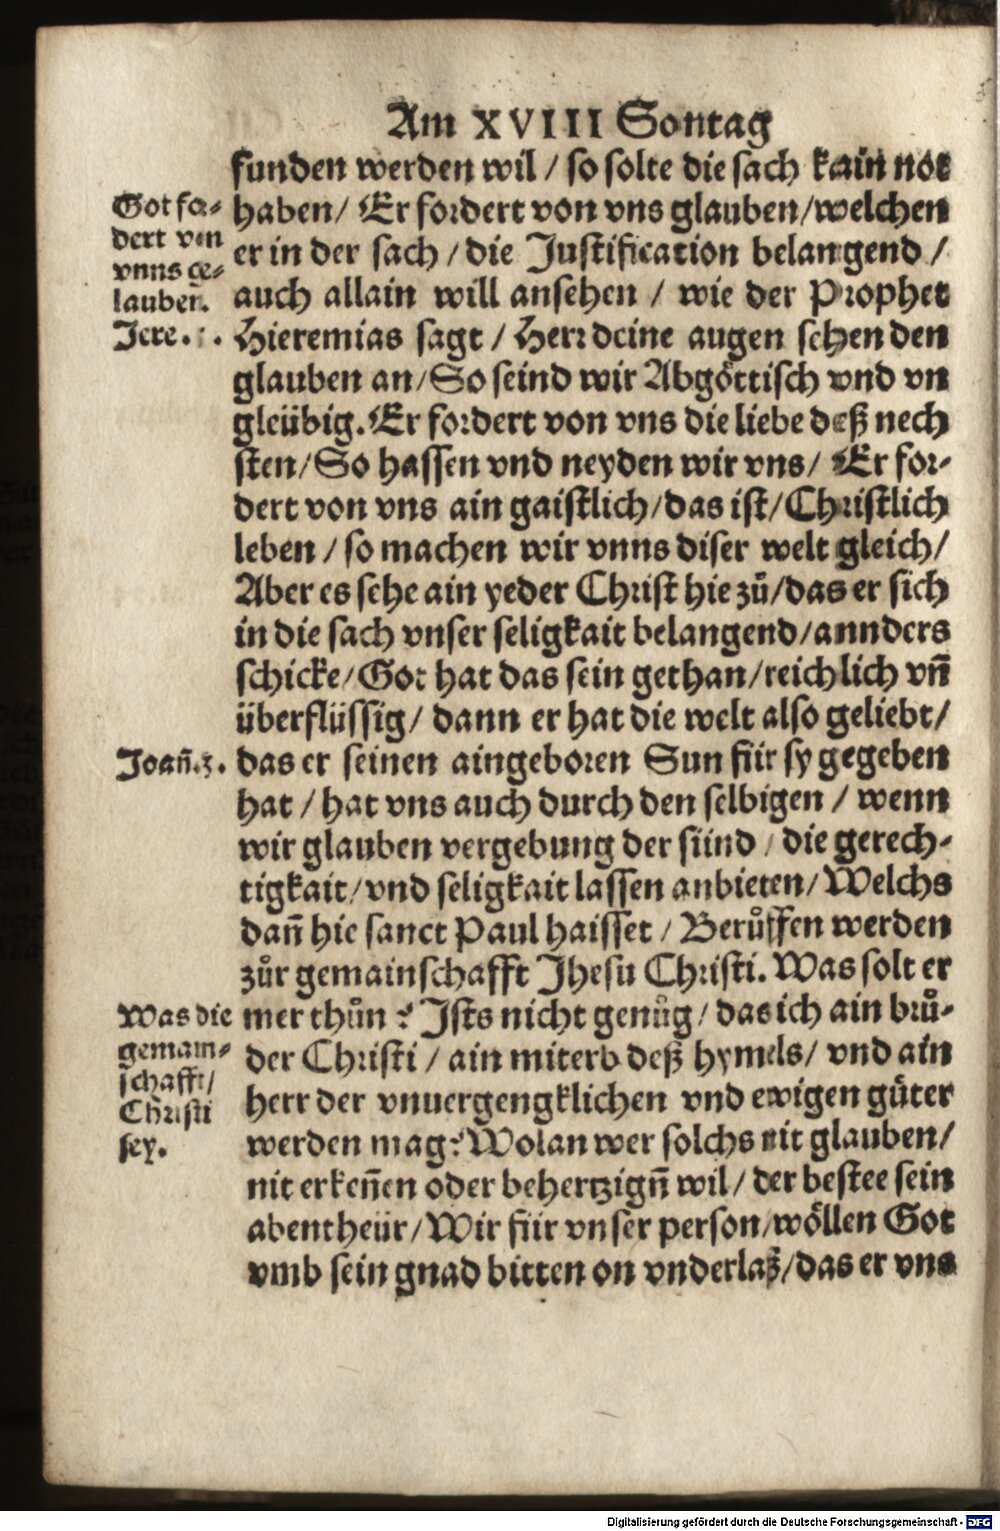 Am XVIII Sontag
funden werden wil / so solte die sach kain not
haben / Er fordert von vns glauben / welchen
er in der sach / die Justification belangend /
auch allain will ansehen / wie der Prophet
Hieremias sagt / Herr deine augen sehen den
glauben an / So seind wir Abgöttisch vnd vn
gleübig. Er fordert von vns die liebe deß nech
sten / So hassen vnd neyden wir vns / Er for-
dert von vns ain gaistlich / das ist / Christlich
leben / so machen wir vnns diser welt gleich /
Aber es sehe ain yeder Christ hie zů / das er sich
in die sach vnser seligkait belangend / annders
schicke / Got hat das sein gethan / reichlich vñ
überflüssig / dann er hat die welt also geliebt /
das er seinen aingeboren Sun für sy gegeben
hat / hat vns auch durch den selbigen / wenn
wir glauben vergebung der sünd / die gerech-
tigkait / vnd seligkait lassen anbieten / Welchs
dañ hie sanct Paul haisset / Berůffen werden
zůr gemainschafft Jhesu Christi. Was solt er
mer thůn ? Ists nicht genůg / das ich ain brů-
der Christi / ain miterb deß hymels / vnd ain
herr der vnuergengklichen vnd ewigen gůter
werden mag ? Wolan wer solchs nit glauben /
nit erkeñen oder behertzigñ wil / der bestee sein
abentheür / Wir für vnser person / wöllen Got
vmb sein gnad bitten on vnderlaß / das er vns
Got fo-
dert von
vnns ge-
lauben.
Jere.
Joañ. 3.
Was die
gemain-
schafft /
Christi
sey.
Digitalisierung gefördert durch die Deutsche Forschungsgemeinschaft - DFG